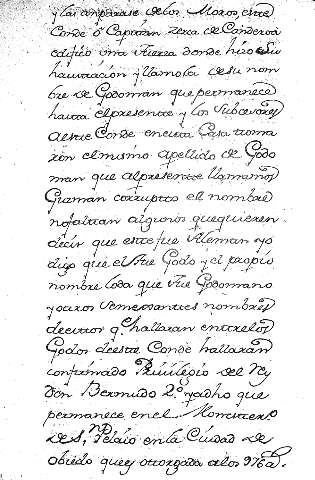 y las amparase de los Moros, este
Conde o Capitan zerca de Candesoa
edifico una Fuerza donde hizo su
hauitazion y llamola de su nom
bre de Godoman que permaneze
hasta el presente y los Subcesores
de este Conde en esta Casa toma
ron el mismo apellido de Godo
man que al presente llamamos
Guzman corrupto el nombre
no faltan algunos que quieren
decir que este fue Aleman yo
digo que el fue Godo y el propio
nombre Loda que fue Godomano
y otros semexantes nombres
de estos q.e hallaran entre los
Godos de este Conde hallaran
confirmado Priuilegio del Rey
Don Bermudo 2.o ya dho que
permaneze en el Monester.o
de S.n Pelaio en la Ciudad de
Obiedo que es otorgada a los 976 a.s